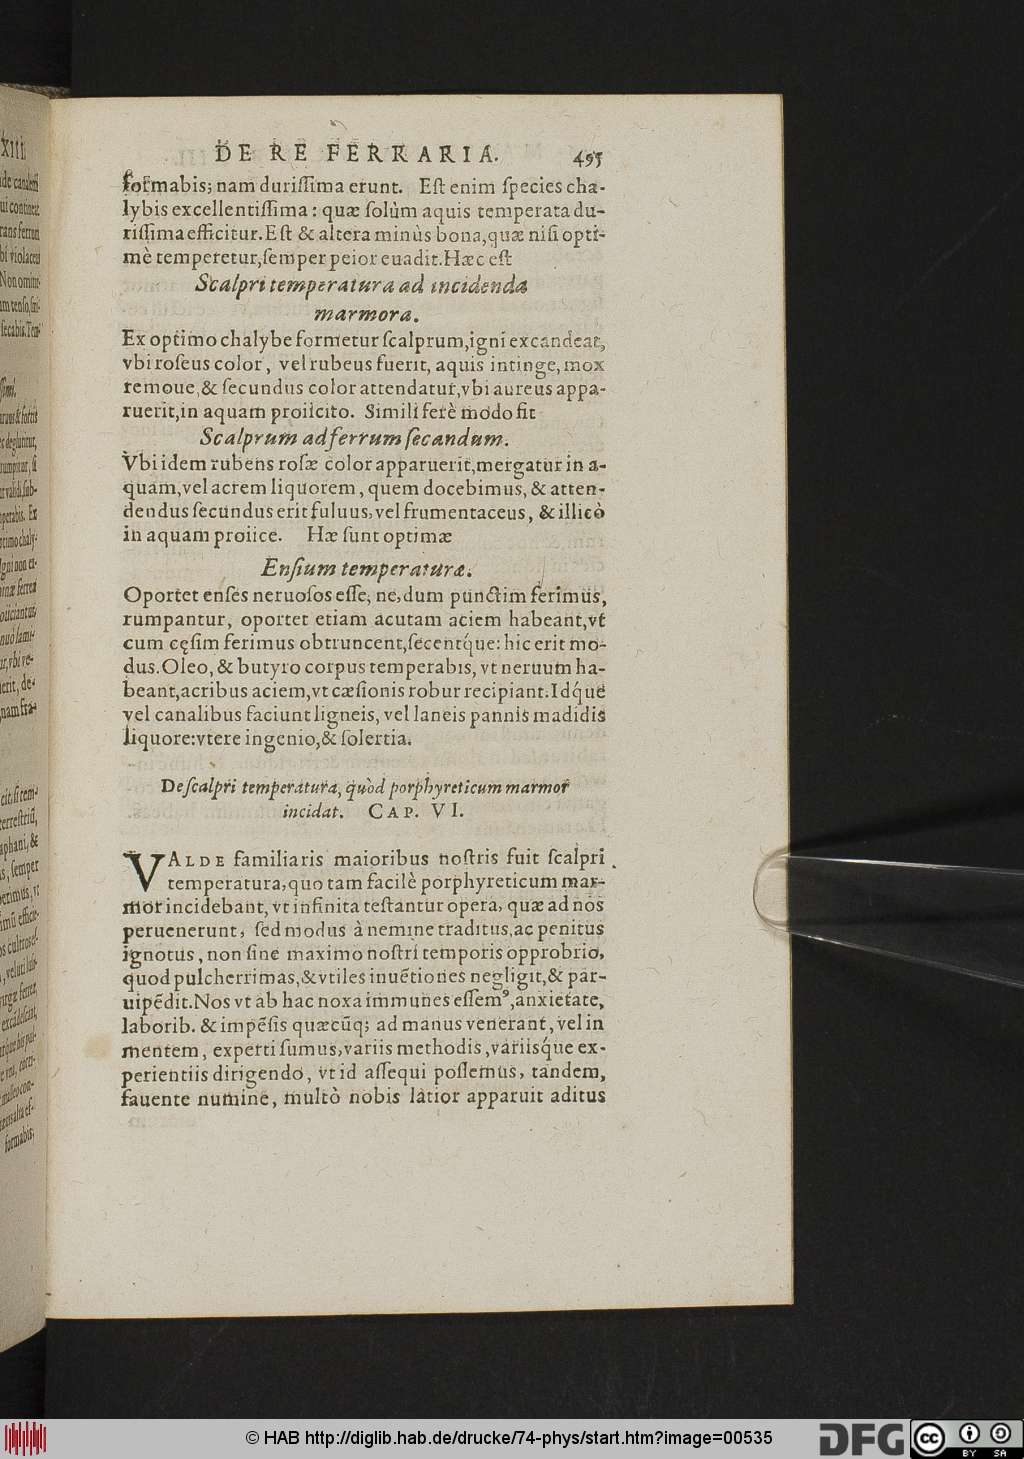 DE RE FERRARIA. 495
formabis; nam durissima erunt. Est enim species cha-
lybis excellentissima: quæ solùm aquis temperata du-
rissima efficitur. Est & altera minùs bona, quæ nisi opti-
mè temperetur, semper peior euadit. Hæc est
Scalpri temperatura ad incidenda
marmora.
Ex optimo chalybe formetur scalprum, igni excandeat,
vbi roseus color, vel rubeus fuerit, aquis intinge, mox
remoue, & secundus color attendatur, vbi aureus appa-
ruerit, in aquam proiicito. Simili ferè modo fit
Scalprum ad ferrum secandum.
Vbi idem rubens rosæ color apparuerit, mergatur in a-
quam, vel acrem liquorem, quem docebimus, & atten-
dendus secundus erit fuluus, vel frumentaceus, & illicò
in aquam proiice. Hæ sunt optimæ
Ensium temperaturæ.
Oportet enses neruosos esse, ne, dum punctim ferimus,
rumpantur, oportet etiam acutam aciem habeant, vt
cum cęsim ferimus obtruncent, secentq́ue: hic erit mo-
dus. Oleo, & butyro corpus temperabis, vt neruum ha-
beant, acribus aciem, vt cæsionis robur recipiant. Idq́ue
vel canalibus faciunt ligneis, vel laneis pannis madidis
liquore: vtere ingenio, & solertia.
De scalpri temperatura, quòd porphyreticum marmor
incidat. CAP. VI.
VALDE familiaris maioribus nostris fuit scalpri
temperatura, quo tam facilè porphyreticum mar-
mor incidebant, vt infinita testantur opera, quæ ad nos
peruenerunt, sed modus à nemine traditus, ac penitus
ignotus, non sine maximo nostri temporis opprobrio,
quod pulcherrimas, & vtiles inuẽtiones negligit, & par-
uipẽdit. Nos vt ab hac noxa immunes essemꝰ, anxietate,
laborib. & impẽsis quæcũq; ad manus venerant, vel in
mentem, experti sumus, variis methodis, variisq́ue ex-
perientiis dirigendo, vt id assequi possemus, tandem,
fauente numine, multò nobis latior apparuit aditus
© HAB http://diglib.hab.de/drucke/74-phys/start.htm?image=00535
DFG
cc BY SA